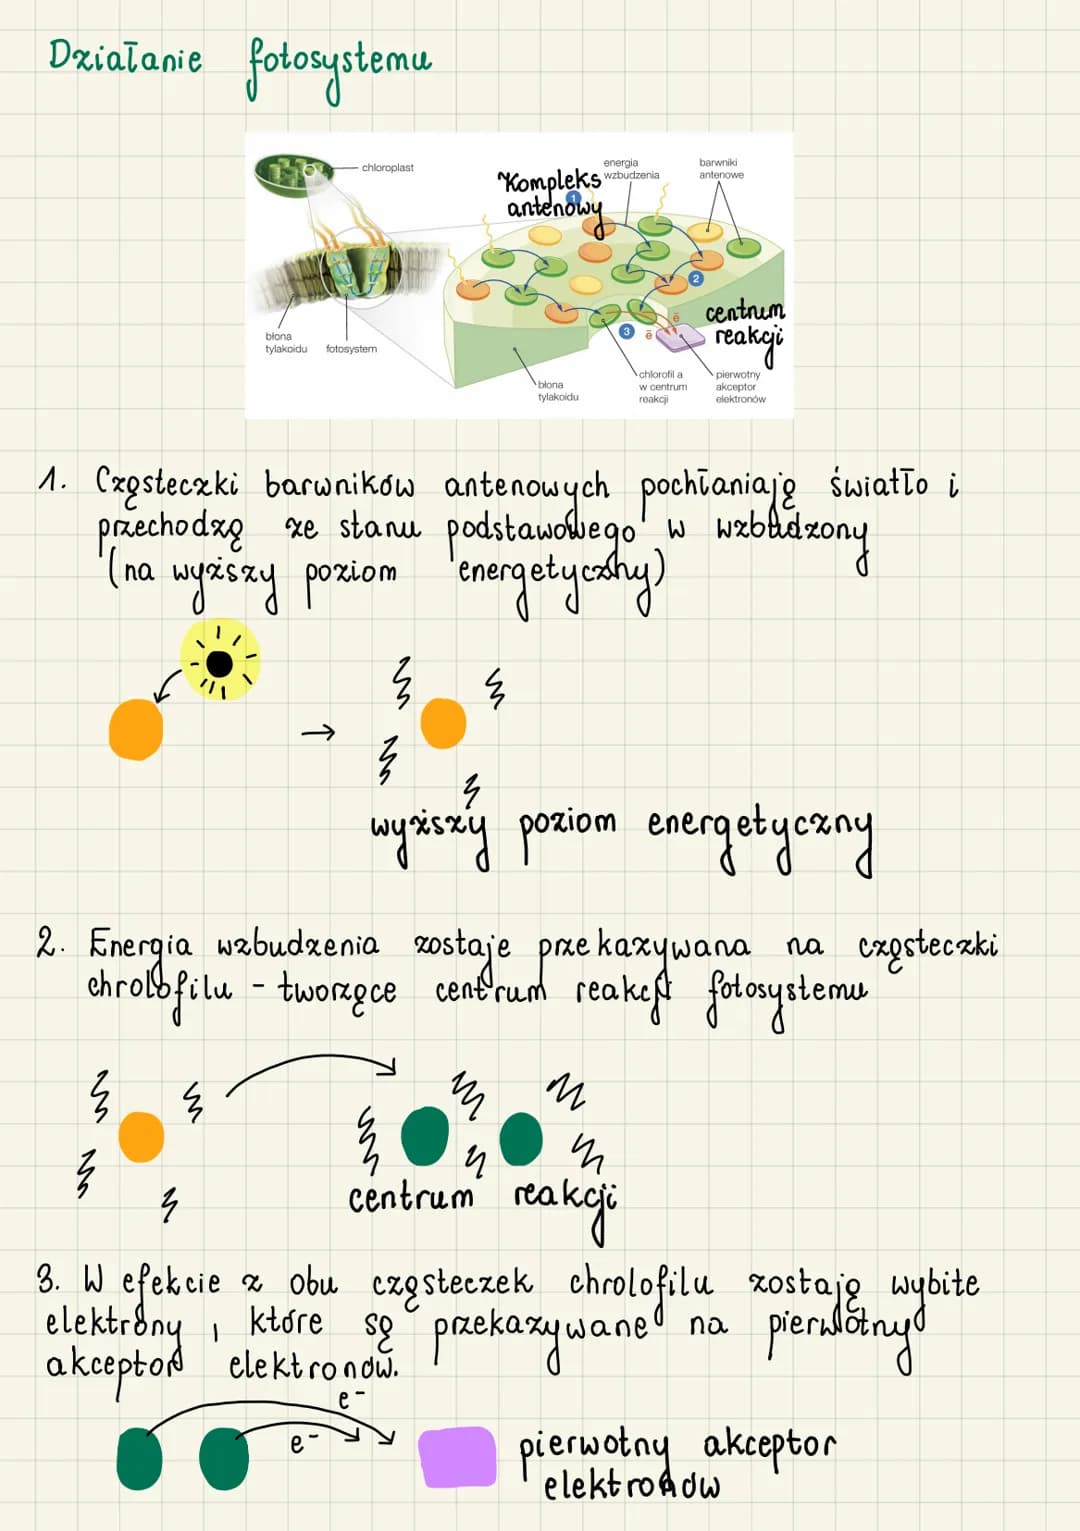 Działanie fotosystemu
chloroplast
Kompleks
antenowy
1
energia
wzbudzenia
barwniki
antenowe
2
centrum
reakcji
3
ē
ē
błona
tylakoidu
fotosystem
błona
tylakoidu
chlorofil a
w centrum
reakcji
pierwotny
akceptor
elektronów
1. Cząsteczki barwników antenowych pochłaniają światło i
przechodzą ze stanu podstawowego w wzbudzony
(na wyższy poziom energetyczny)
→
wyższy poziom energetyczny
2. Energia wzbudzenia zostaje przekazywana na cząsteczki
chrolofilu - tworzące centrum reakcji fotosystemu
centrum reakcji
3. W efekcie z obu cząsteczek chrolofilu zostają wybite
elektrony, które są przekazywane na pierwotny
akceptor elektronów.
e-
e-
pierwotny akceptor
elektronów